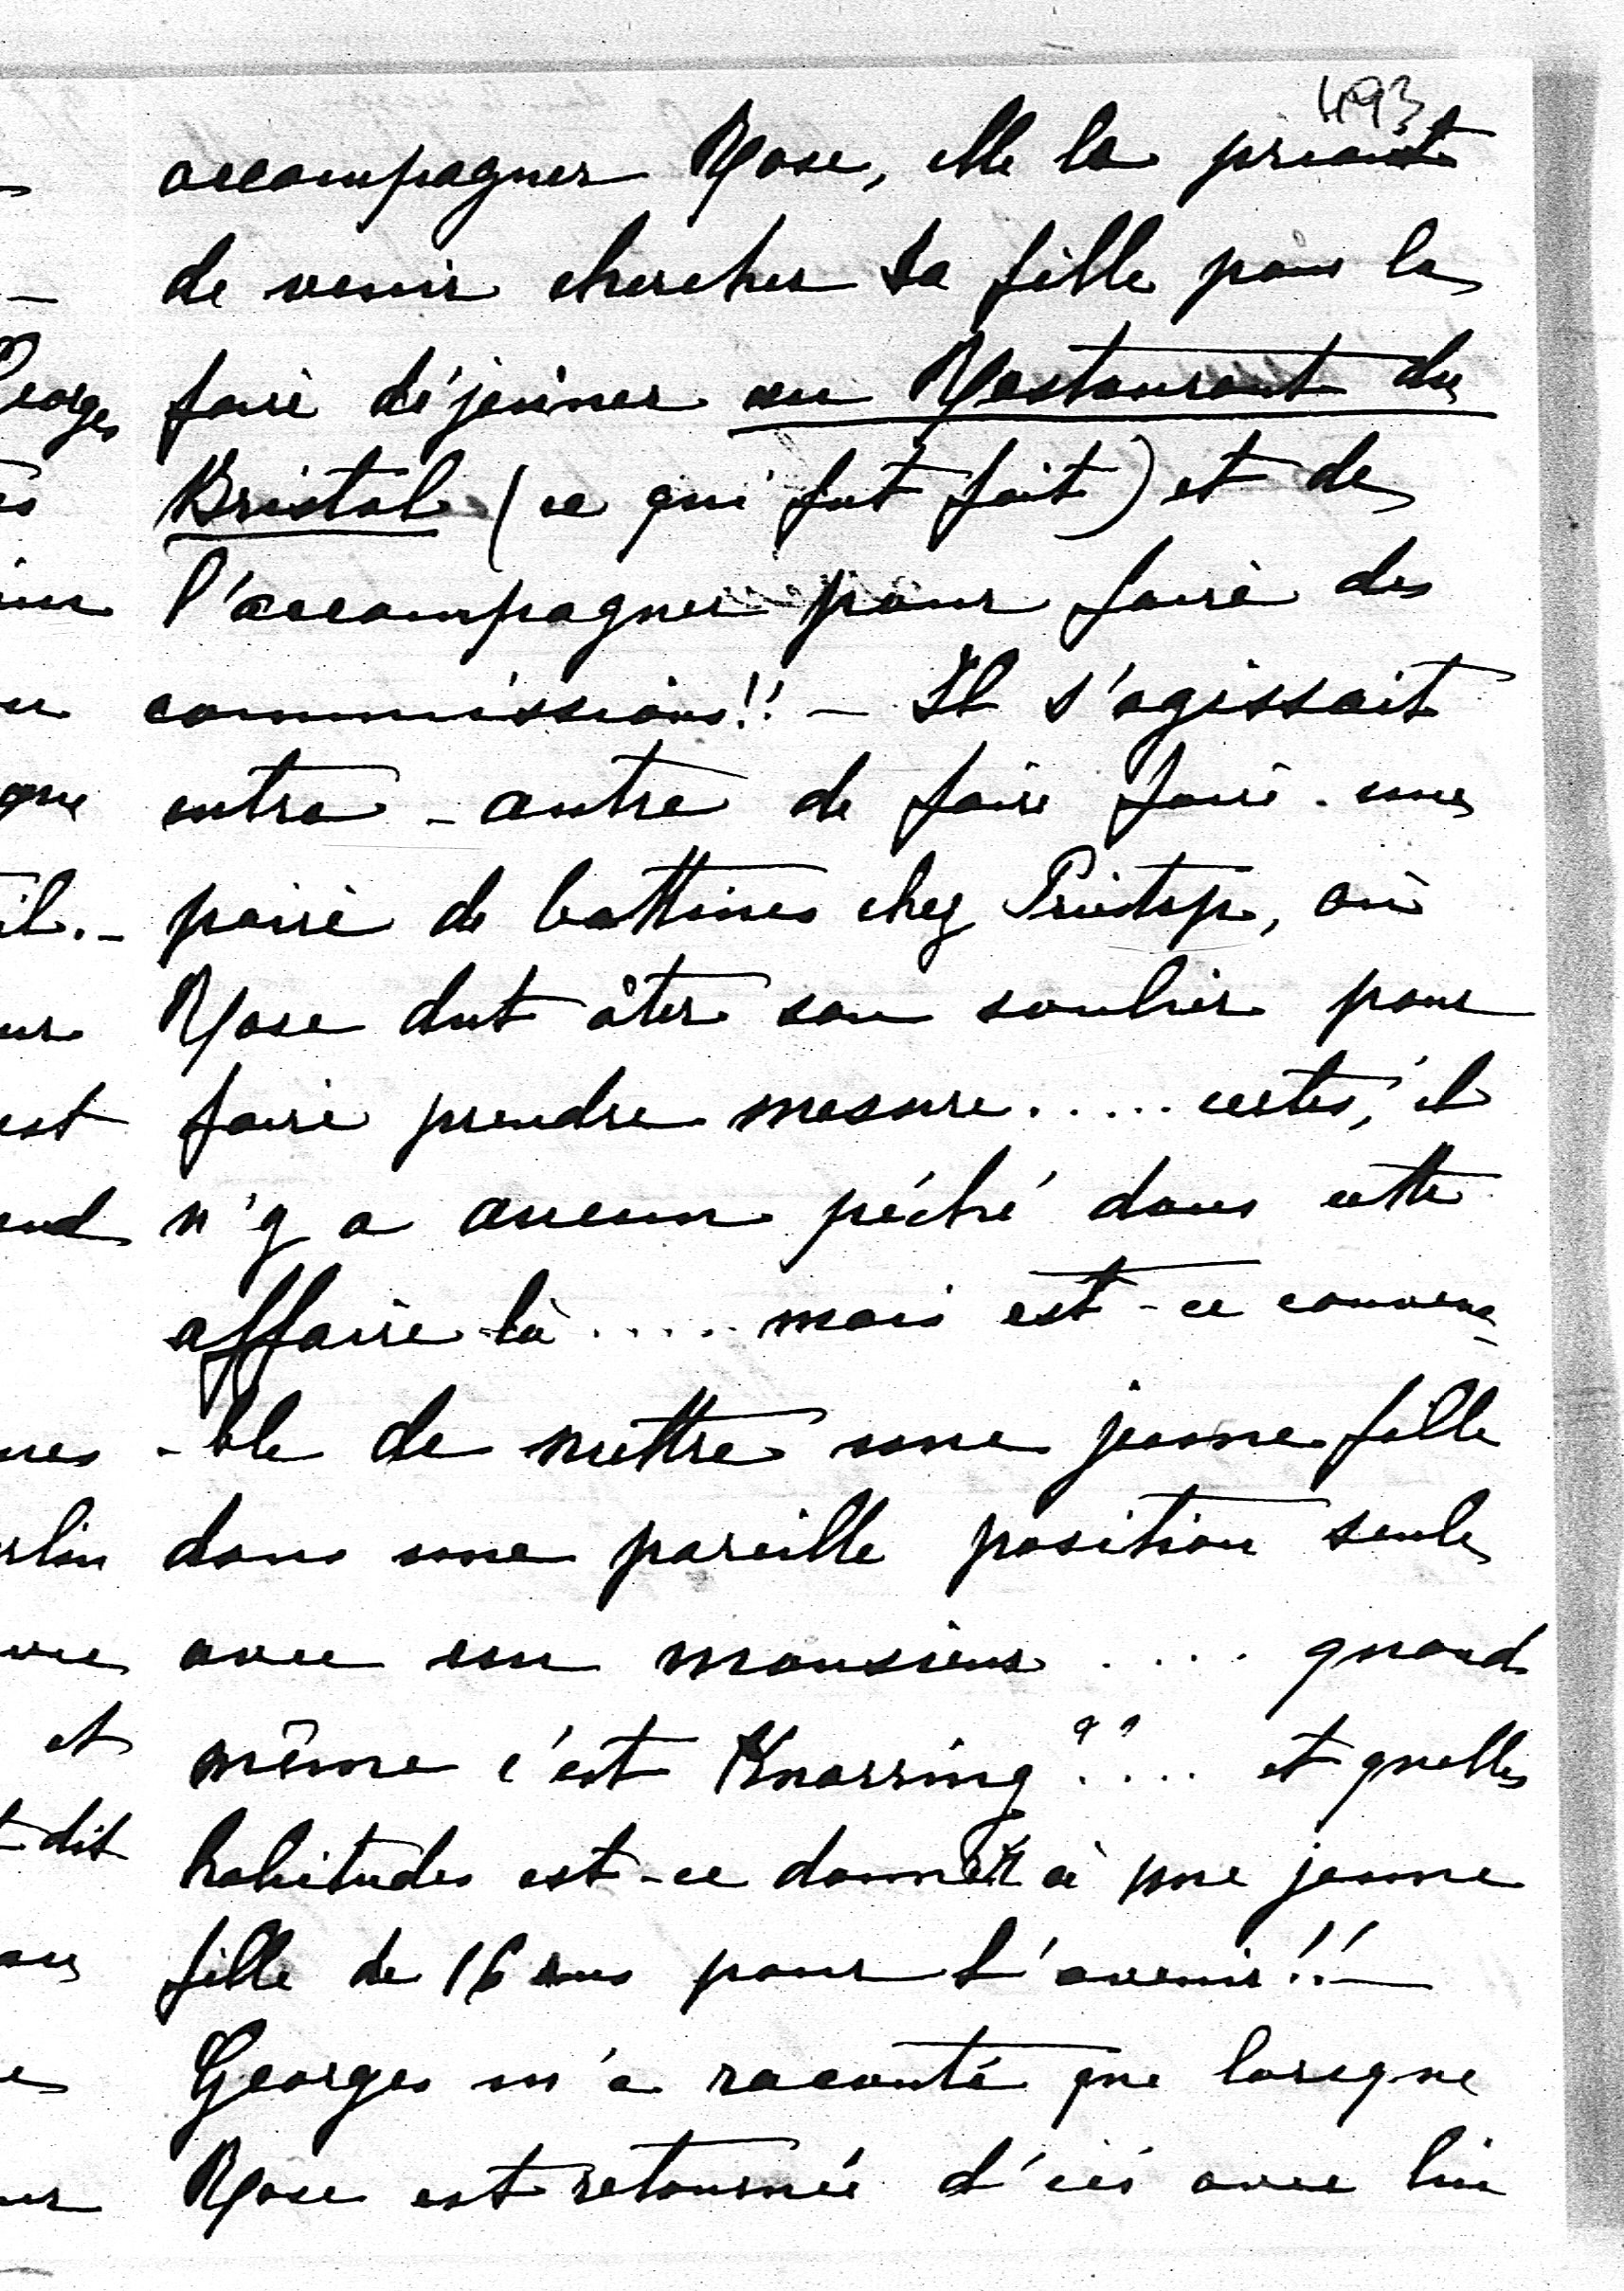 493
accompagner Rose, elle la priait
de venir chercher sa fille pour la
faire déjeûner au Restaurant du
Bristol (ce qui fut fait) et de
l'accompagner pour faire des
commissions!! – Il s'agissait
entre-autre de faire faire une
paire de bottines chez où
Rose dut ôter son soulier pour
faire prendre mesure..... certes, il
n'y a aucun péché dans cette
affaire-là ..... mais est-ce convena-
-ble de mettre une jeune fille
dans une pareille position seule
avec un monsieur .... quand
même c'est Knorring??.... et quelles
habitudes est-ce donner à une jeune
fille de 16 ans pour l'avenir!! –
Georges m'a raconté que lorsque
Rose est retournée d'ici avec lui